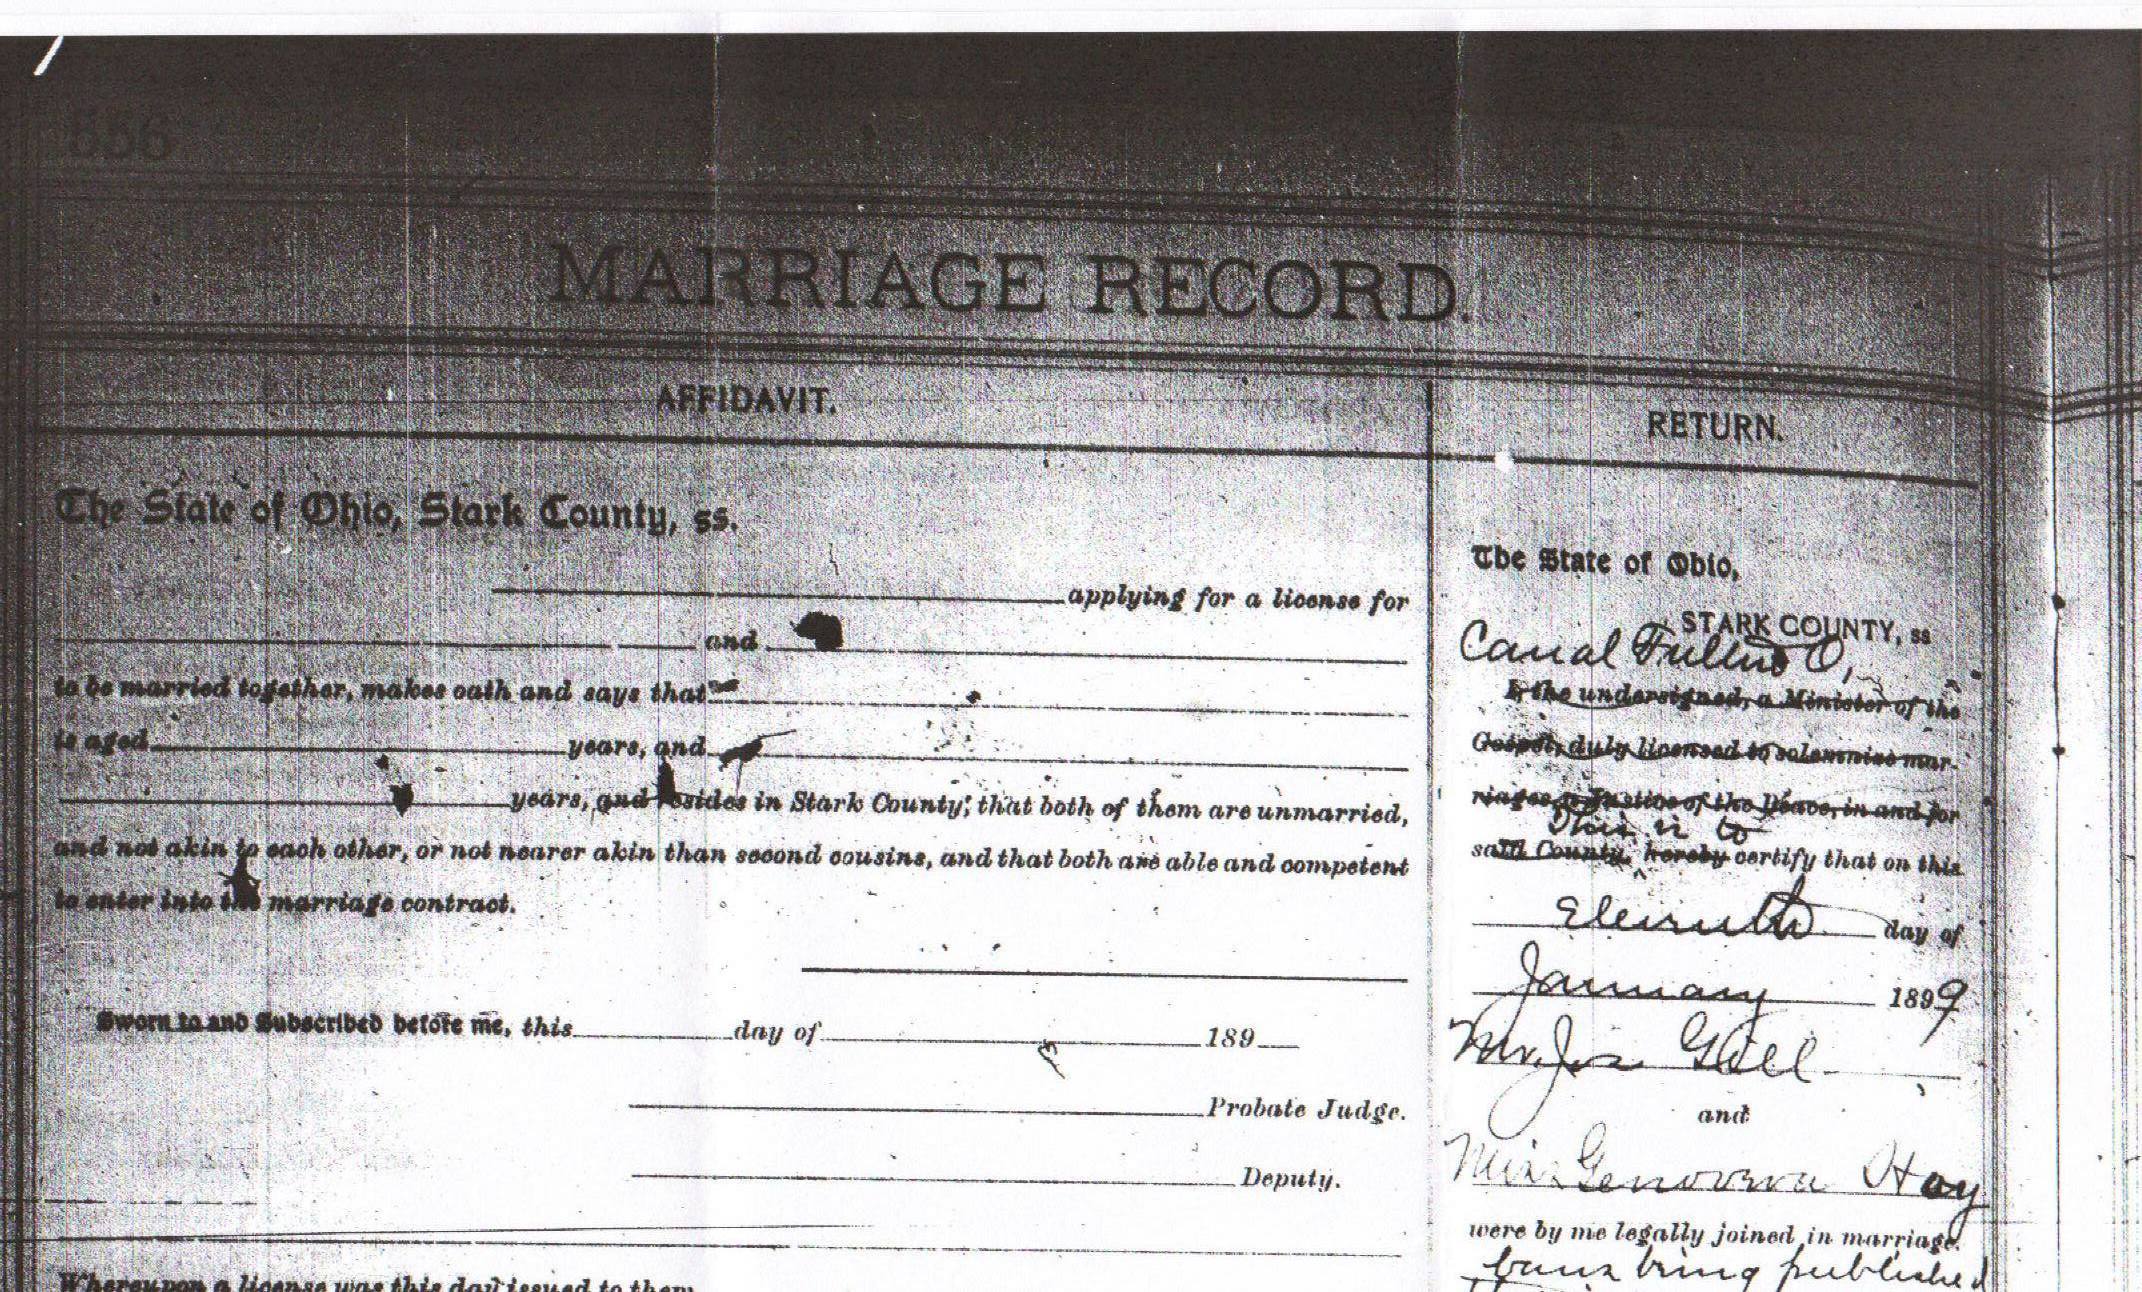 556
MARRIAGE RECORD.
AFFIDAVIT.
The State of Ohio, Stark County, ss.
applying for a license for
and
to be married together, makes oath and says that
is aged years, and
years, and resides in Stark County; that both of them are unmarried,
and not akin to each other, or not nearer akin than second cousins, and that both are able and competent
to enter into the marriage contract.
Sworn to and Subscribed before me, this day of 189
Probate Judge.
Deputy.
Whereupon a license was this day issued to them
RETURN.
The State of Ohio,
STARK COUNTY, ss
Canal Fulton O,
I, the undersigned, a Minister of the
Gospel, duly licensed to solemnize mar-
riages, a Justice of the Peace, in and for
This is to
said County, hereby certify that on this
Elevnth day of
January 1899
Mr. Jos Gill
and
Miss Genoveva Hay
were by me legally joined in marriage.
bans being published